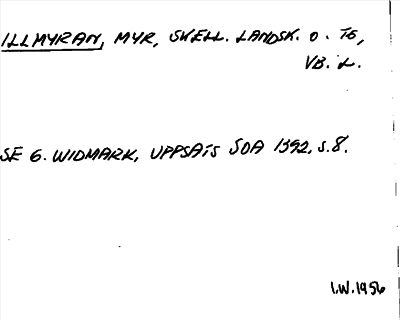 ILLMYRAN, MYR, SKELL. LANDSK. O. TG,
VB. L.
SE G. WIDMARK, UPPSATS SOA 1392, S. 8.
I.W. 1956